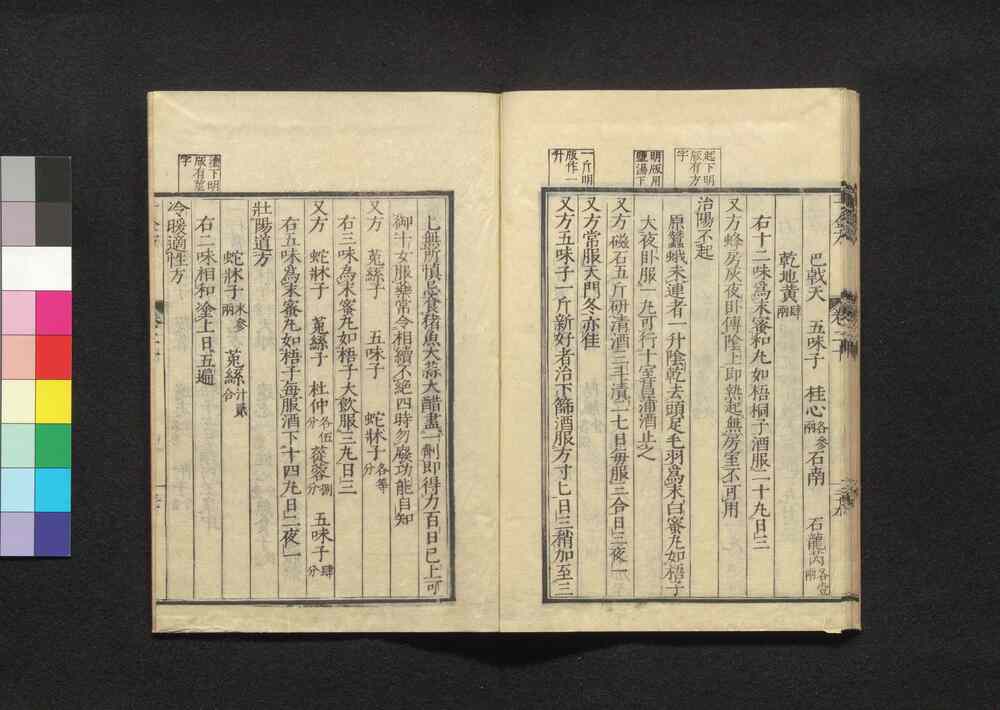 起下明
版有方
字
明版用
鹽湯下
一斤明
版作一
升
巴戟天　五味子　桂心各參兩　石南　石龍芮各壹兩
乾地黃肆兩
右十二味為末蜜和丸如梧桐子酒服二十丸日三
又方蜂房灰夜卧傅陰上即熱起無房室不可用
治陽不起
原蠶蛾未連者一升陰乾去頭足毛羽為末白蜜丸如梧子
大夜卧服一丸可行十室菖蒲酒止之
又方磁石五斤研清酒三斗漬二七日每服三合日三夜一
又方常服天門冬亦佳
又方五味子一斤新好者治下篩酒服方寸匕日三稍加至三
版有
字
匕無所慎忌食豬魚大蒜大醋盡一劑即得力百日已上可
御十女服藥常令相續不絕四時勿廢功能自知
又方　菟絲子　五味子　蛇牀子各等分
右三味為末蜜丸如梧子大飲服三丸日三
又方　蛇牀子　菟絲子　杜仲各伍分　蓯蓉捌分　五味子肆分
右五味為末蜜丸如梧子每服酒下十四丸日二夜一
壯陽道方
蛇牀子末參兩　菟絲汁貳合
右二味相和塗上日五遍
冷暖適性方